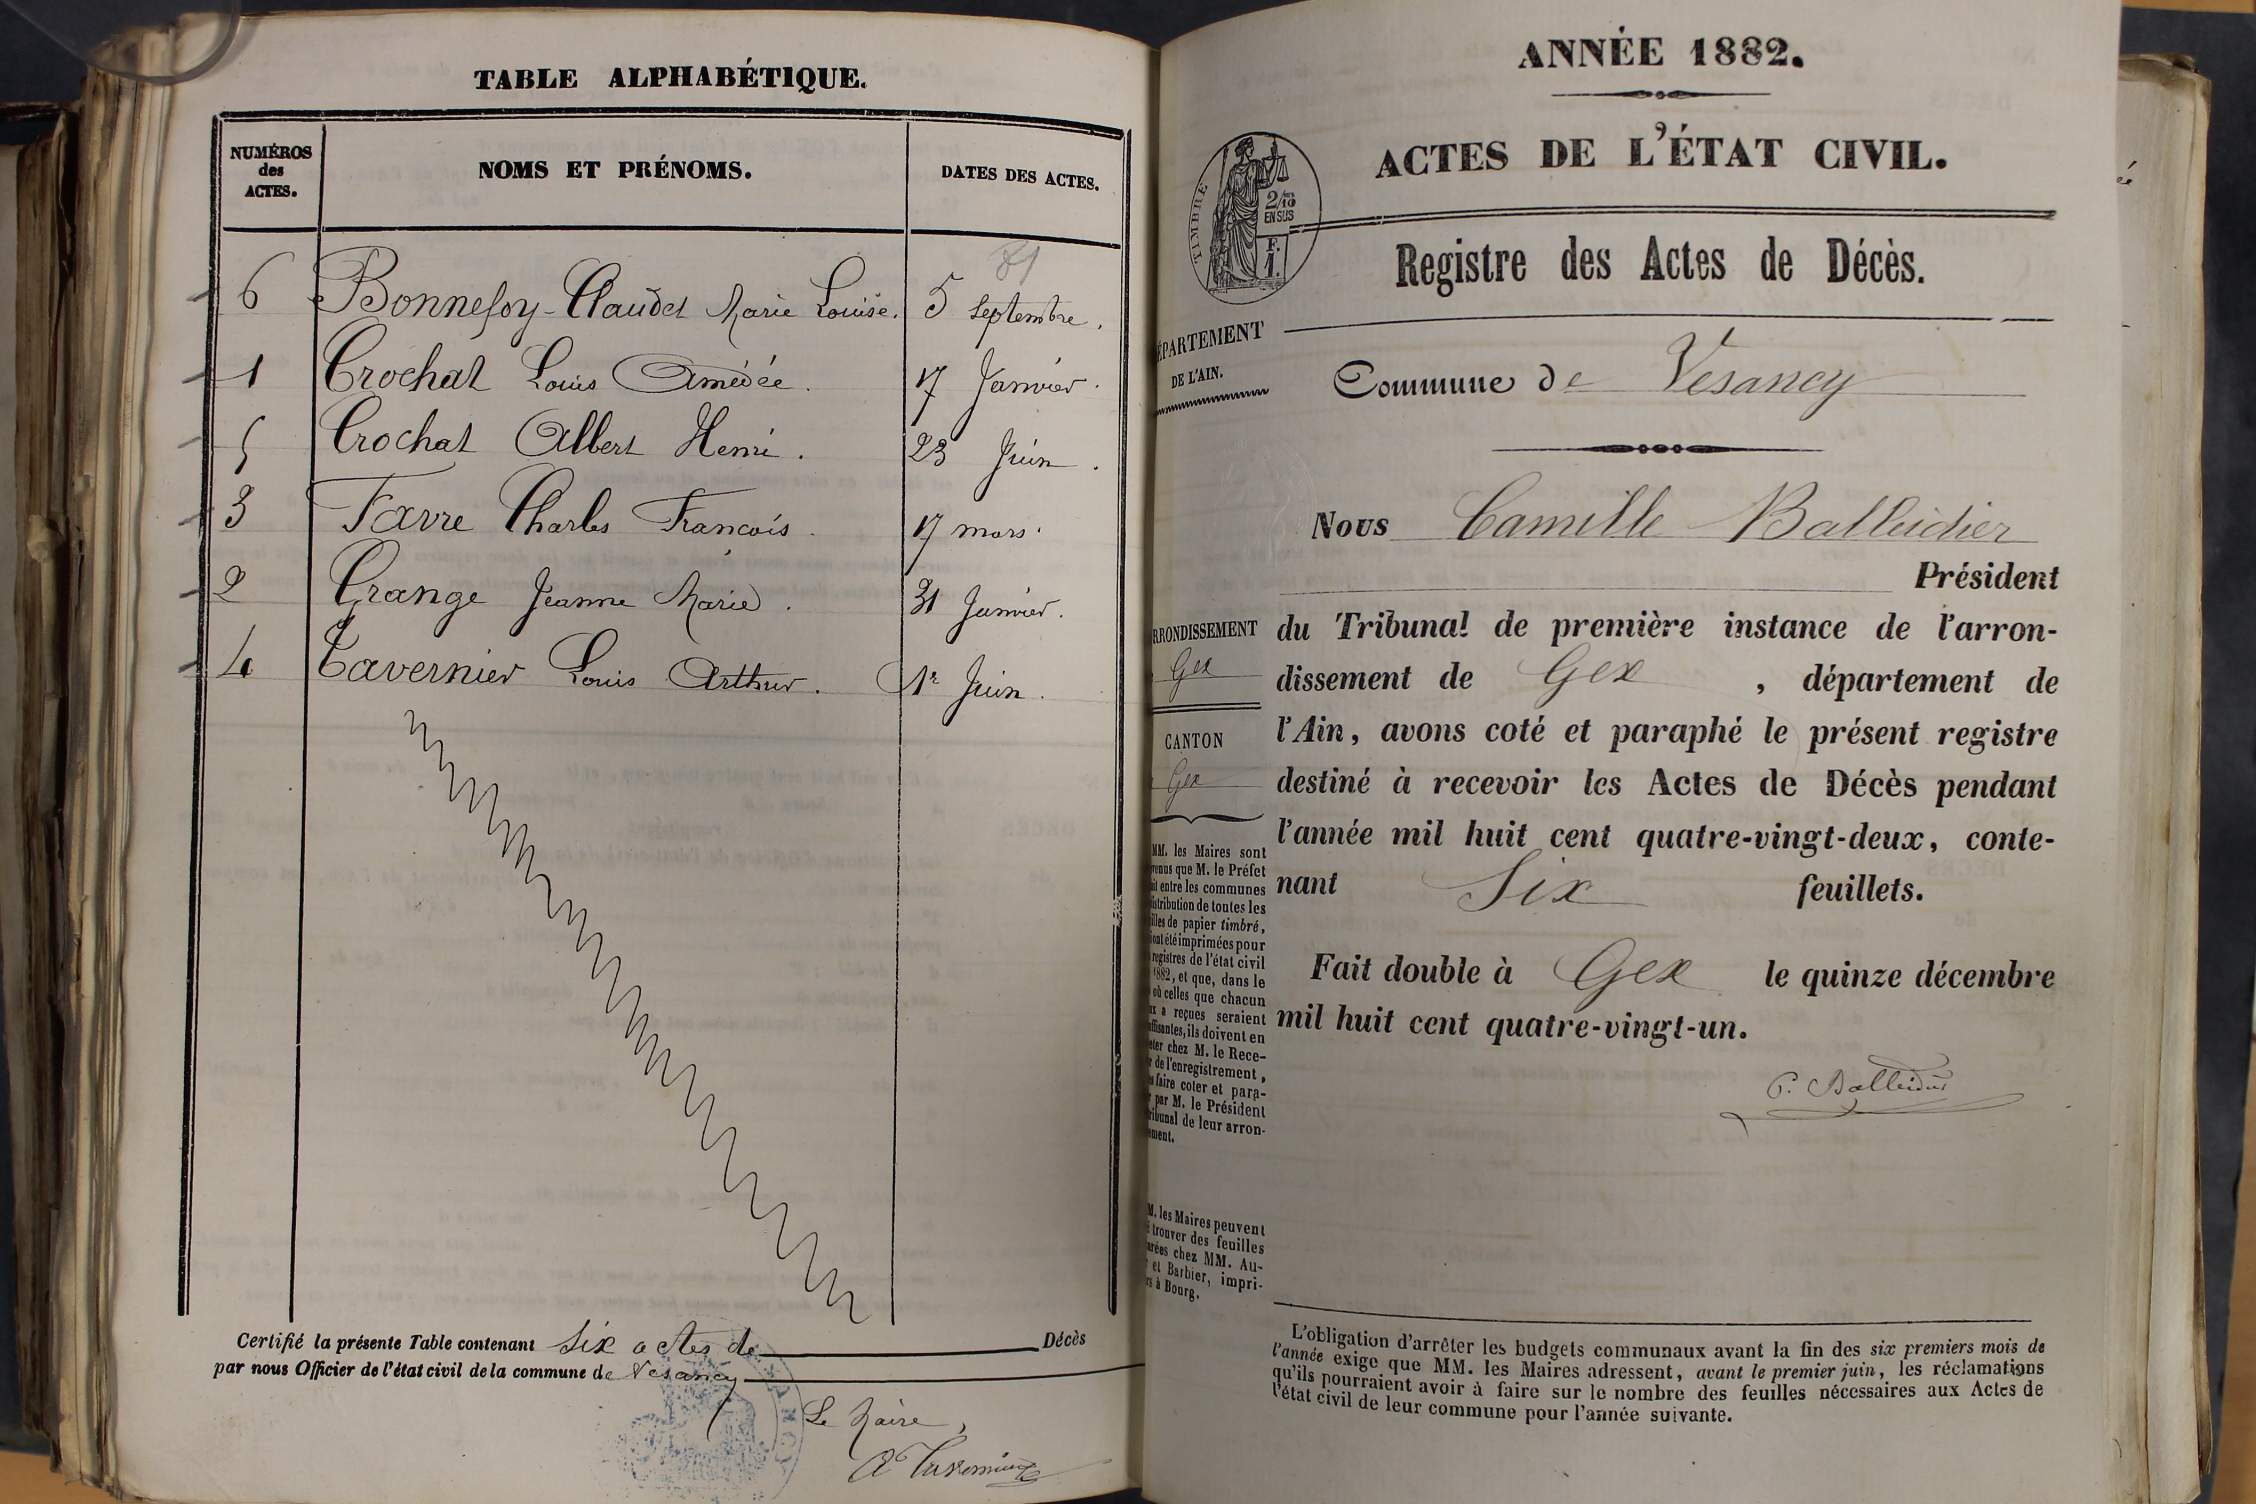 TABLE ALPHABÉTIQUE.
NUMÉROS
des
ACTES.
NOMS ET PRÉNOMS.
DATES DES ACTES.
81
6 Bonnefoy-Claudet Marie Louise. 5 septembre.
1 Crochat Louis Amédée. 17 Janvier.
5 Crochat Albert Henri. 23 Juin.
3 Favre Charles Francois. 17 mars.
2 Grange Jeanne Marie. 31 Janvier.
4 Tavernier Louis Arthur. 1r Juin.
Certifié la présente Table contenant Six actes de Décès
par nous Officier de l'état civil de la commune de Vesancy
Le Maire,
ANNÉE 1882.
ACTES DE L'ÉTAT CIVIL.
TIMBRE
2/10
EN SUS
F.
1.
Registre des Actes de Décès.
ÉPARTEMENT
DE L'AIN.
Commune de Vesancy
Nous Camille Balleidier
Président
RRONDISSEMENT
Gex
du Tribunal de première instance de l'arron-
dissement de Gex, département de
l'Ain, avons coté et paraphé le présent registre
destiné à recevoir les Actes de Décès pendant
l'année mil huit cent quatre-vingt-deux, conte-
nant Six feuillets.
Fait double à Gex le quinze décembre
mil huit cent quatre-vingt-un.
C. Balleidier
CANTON
Gex
MM. les Maires sont
venus que M. le Préfet
ait entre les communes
istribution de toutes les
illes de papier timbré,
ont été imprimées pour
registres de l'état civil
1882, et que, dans le
où celles que chacun
ux a reçues seraient
uffisantes, ils doivent en
eter chez M. le Rece-
r de l'enregistrement,
s faire coter et para-
r par M. le Président
ribunal de leur arron-
ement.
M. les Maires peuvent
trouver des feuilles
arées chez MM. Au-
r et Barbier, impri-
rs à Bourg.
L'obligation d'arrêter les budgets communaux avant la fin des six premiers mois de
l'année exige que MM. les Maires adressent, avant le premier juin, les réclamations
qu'ils pourraient avoir à faire sur le nombre des feuilles nécessaires aux Actes de
l'état civil de leur commune pour l'année suivante.